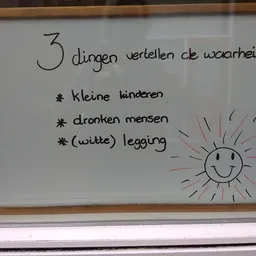 3 dingen vertellen de waarhei
* kleine kinderen
* dronken mensen
* (witte) legging